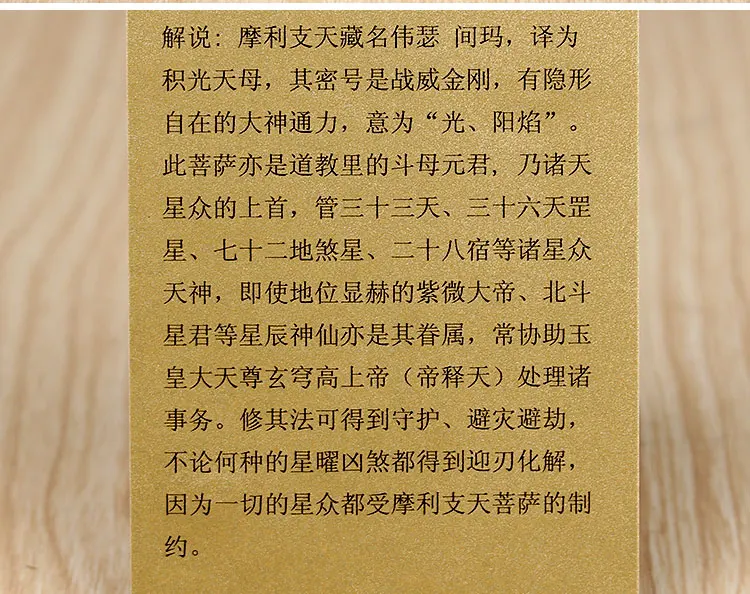 解说：摩利支天藏名伟瑟 间玛，译为
积光天母，其密号是战威金刚，有隐形
自在的大神通力，意为“光、阳焰”。
此菩萨亦是道教里的斗母元君，乃诸天
星众的上首，管三十三天、三十六天罡
星、七十二地煞星、二十八宿等诸星众
天神，即使地位显赫的紫微大帝、北斗
星君等星辰神仙亦是其眷属，常协助玉
皇大天尊玄穹高上帝（帝释天）处理诸
事务。修其法可得到守护、避灾避劫，
不论何种的星曜凶煞都得到迎刃化解，
因为一切的星众都受摩利支天菩萨的制
约。